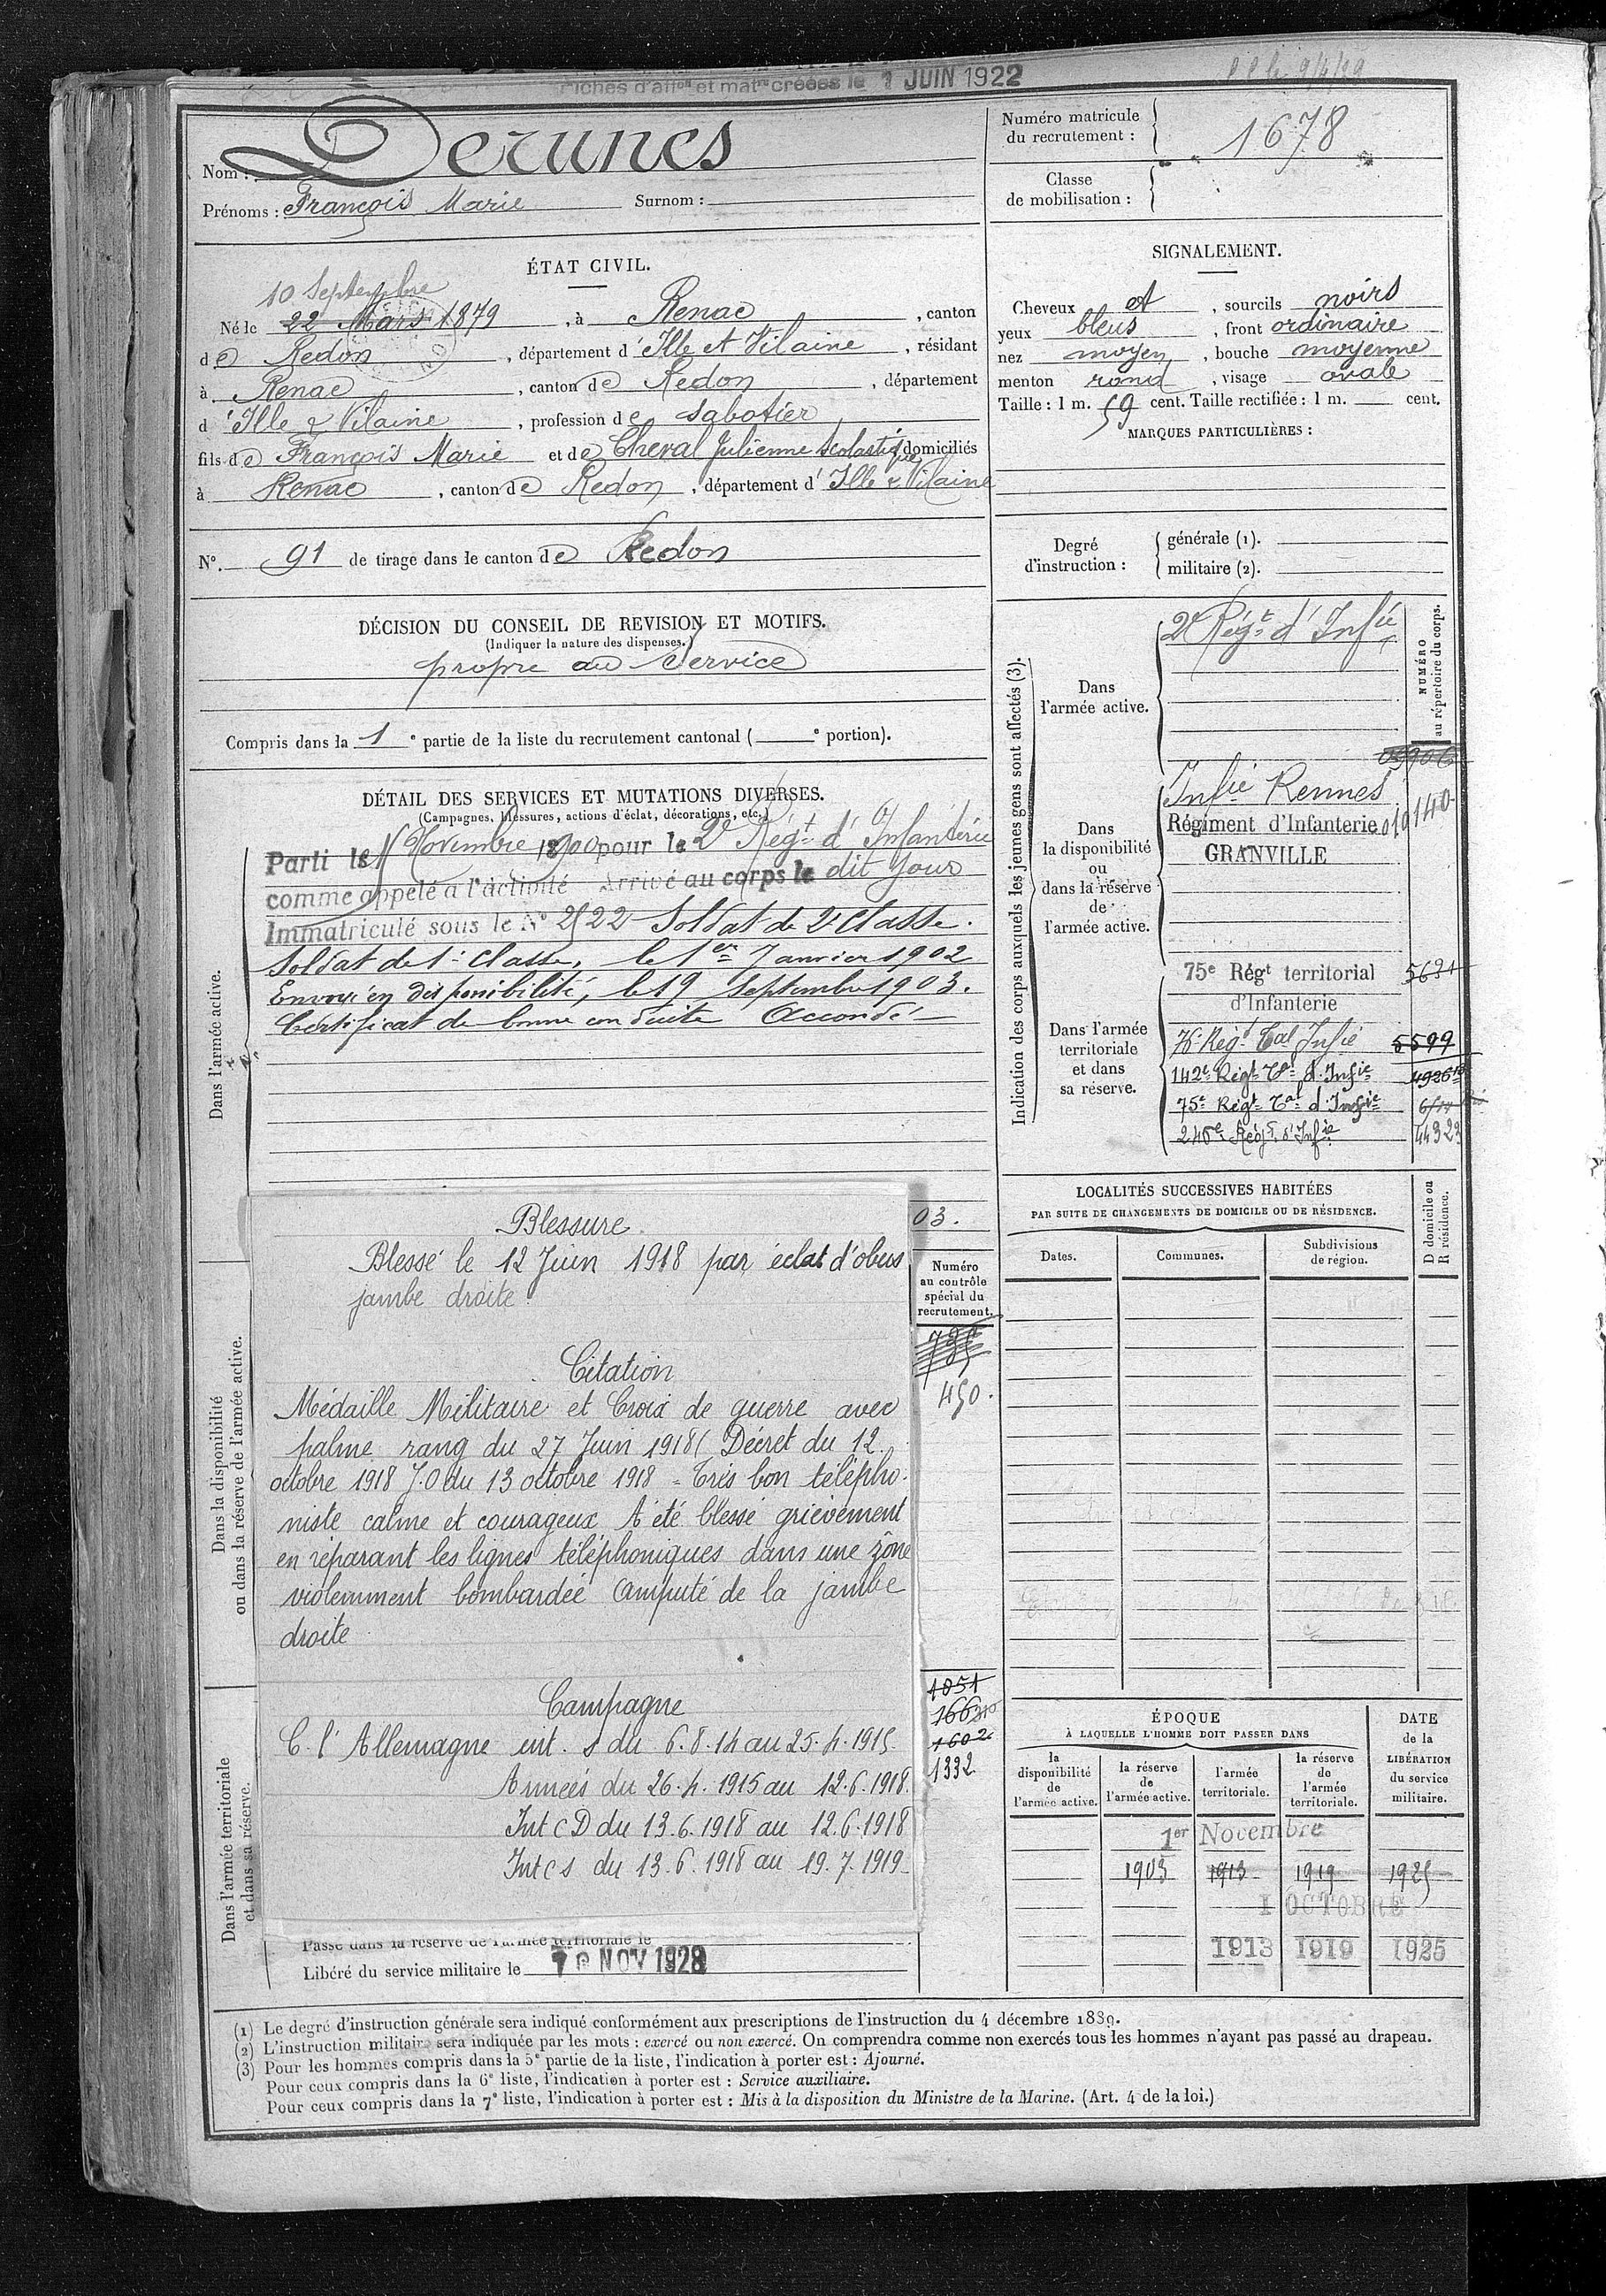 Fiches d'affon et matle créées le 1 JUIN 1922
Nom : Derunes
Prénoms : François Marie Surnom :
Numéro matricule
du recrutement : 1678
Classe
de mobilisation :
ÉTAT CIVIL.
10 Septembre
Né le 22 Mars 1879, à Renac, canton
de Redon, département d'Ille et Vilaine, résidant
à Renac, canton de Redon, département
d'Ille & Vilaine, profession de sabotier
fils de François Marie et de Cheval Julienne Scolastique domiciliés
à Renac, canton de Redon, département d'Ille & Vilaine
SIGNALEMENT.
Cheveux et, sourcils noirs
yeux bleus, front ordinaire
nez moyen, bouche moyenne
menton rond, visage ovale
Taille : 1 m. 59 cent. Taille rectifiée : 1 m. cent.
MARQUES PARTICULIÈRES :
N°. 91 de tirage dans le canton de Redon
Degré
d'instruction :
générale (1).
militaire (2).
DÉCISION DU CONSEIL DE REVISION ET MOTIFS.
(Indiquer la nature des dispenses.)
propre au service
Compris dans la 1e partie de la liste du recrutement cantonal ( e portion).
DÉTAIL DES SERVICES ET MUTATIONS DIVERSES.
(Campagnes, blessures, actions d'éclat, décorations, etc.)
Dans l'armée active.
Parti le Novembre 1900 pour le 2e Régt d'Infanterie
comme appelé à l'activité Arrivé au corps le dit jour
Immatriculé sous le N° 2522 Soldat de 2e classe.
Soldat de 1e classe, le 1er Janvier 1902
Envoyé en disponibilité, le 19 Septembre 1903.
Certificat de bonne conduite Accordé
03.
Blessure
Blessé le 12 Juin 1918 par éclat d'obus
jambe droite.
Citation
Médaille Militaire et Croix de guerre avec
palme rang du 27 Juin 1918 (Décret du 12
octobre 1918 J.O du 13 octobre 1918 = Très bon télépho-
niste calme et courageux A été blessé grièvement
en réparant les lignes téléphoniques dans une zône
violemment bombardée Amputé de la jambe
droite
Campagne
C. l'Allemagne int. s du 6.8.14 au 25.4.1915
Armées du 26.4.1915 au 12.6.1918.
Int C D du 13.6.1918 au 12.6.1918
Int c s du 13.6.1918 au 19.7.1919
Dans la disponibilité
ou dans la réserve de l'armée active.
Dans l'armée territoriale
et dans sa réserve.
Numéro
au contrôle
spécial du
recrutement.
735
450.
1051
1602
1332
Passé dans la réserve de l'armée territoriale le
Libéré du service militaire le NOV 1928
Indication des corps auxquels les jeunes gens sont affectés (3).
NUMÉRO
au répertoire du corps.
Dans
l'armée active.
2e Régt d'Infie
Dans
la disponibilité
ou
dans la réserve
de
l'armée active.
Infie Rennes
Régiment d'Infanterie 010140
GRANVILLE
Dans l'armée
territoriale
et dans
sa réserve.
75e Régt territorial
d'Infanterie
76e Régt Tal Infie 5599
142e Régt Tal d'Infie
75e Régt Tal d'Infie
Régt d'Infie 44323
LOCALITÉS SUCCESSIVES HABITÉES
PAR SUITE DE CHANGEMENTS DE DOMICILE OU DE RÉSIDENCE.
Dates.
Communes.
Subdivisions
de région.
D domicile ou
R résidence.
ÉPOQUE
À LAQUELLE L'HOMME DOIT PASSER DANS
la
disponibilité
de
l'armée active.
la réserve
de
l'armée active.
l'armée
territoriale.
la réserve
de
l'armée
territoriale.
DATE
de la
LIBÉRATION
du service
militaire.
1er Novembre
1903 1913 1919 1925
1 OCTOBRE
1913 1919 1925
(1) Le degré d'instruction générale sera indiqué conformément aux prescriptions de l'instruction du 4 décembre 1889.
(2) L'instruction militaire sera indiquée par les mots : exercé ou non exercé. On comprendra comme non exercés tous les hommes n'ayant pas passé au drapeau.
(3) Pour les hommes compris dans la 5e partie de la liste, l'indication à porter est : Ajourné.
Pour ceux compris dans la 6e liste, l'indication à porter est : Service auxiliaire.
Pour ceux compris dans la 7e liste, l'indication à porter est : Mis à la disposition du Ministre de la Marine. (Art. 4 de la loi.)